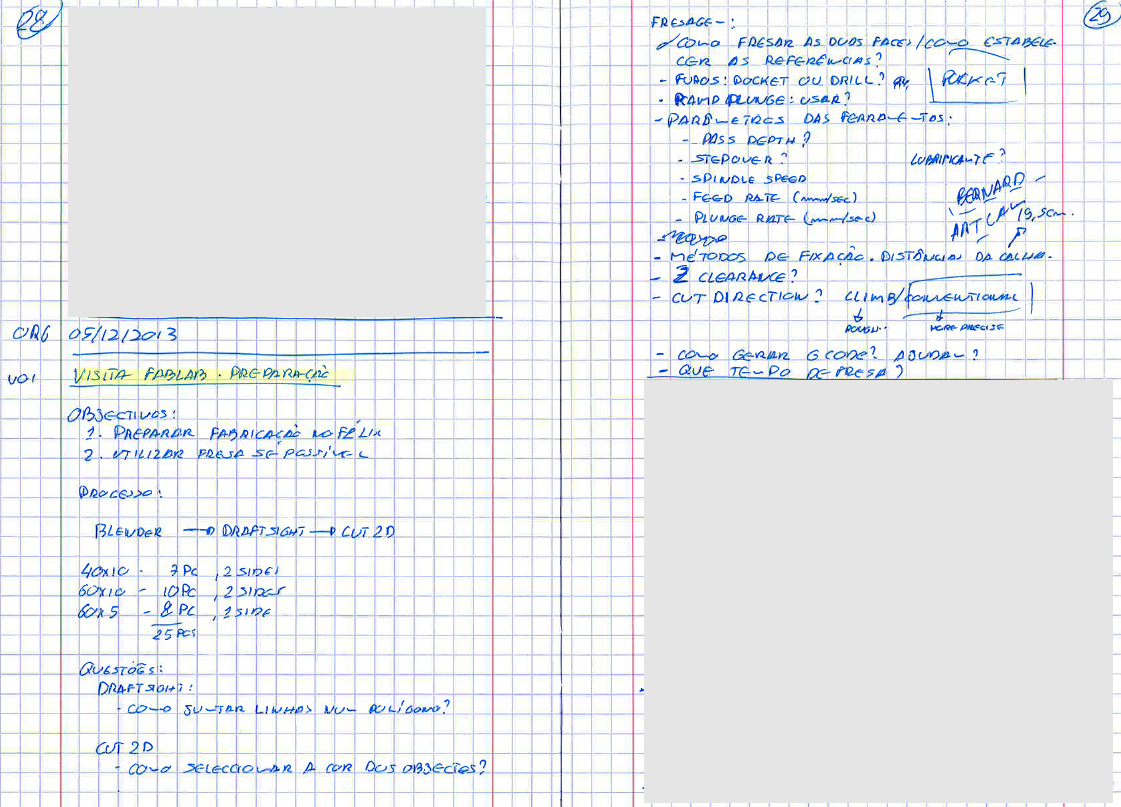 28
ORG 05/12/2013
V01 VISITA FABLAB. PREPARAÇÃO
OBJECTIVOS:
1. PREPARAR FABRICAÇÃO NO FÉLIX
2. UTILIZAR FRESA SE POSSÍVEL
PROCESSO:
BLENDER → DRAFTSIGHT → CUT 2D
40X10 - 7 PC , 2 SIDES
60X10 - 10 PC , 2 SIDES
60X5 - 8 PC , 1 SIDE
25 PCS
QUESTÕES:
DRAFTSIGHT:
- COMO JUNTAR LINHAS NUM POLÍGONO?
CUT 2D
- COMO SELECCIONAR A COR DOS OBJECTOS?
29
FRESAGEM:
COMO FRESAR AS DUAS FACES/COMO ESTABELE-
CER AS REFERÊNCIAS?
- FUROS: POCKET OU DRILL? POCKET
- RAMP PLUNGE: USAR?
- PARÂMETROS DAS FERRAMENTAS:
- PASS DEPTH?
- STEPOVER? LUBRIFICANTE?
- SPINDLE SPEED
- FEED RATE (mm/sec) BERNARD -
- PLUNGE RATE (mm/sec) ARTCAM 19,5cm.
- MÉTODOS DE FIXAÇÃO. DISTÂNCIAS DA CALHA.
- Z CLEARANCE?
- CUT DIRECTION? CLIMB/CONVENTIONAL
ROUGH. MORE PRECISE
- COMO GERAR GCODE? AJUDAM?
- QUE TEMPO DE FRESA?